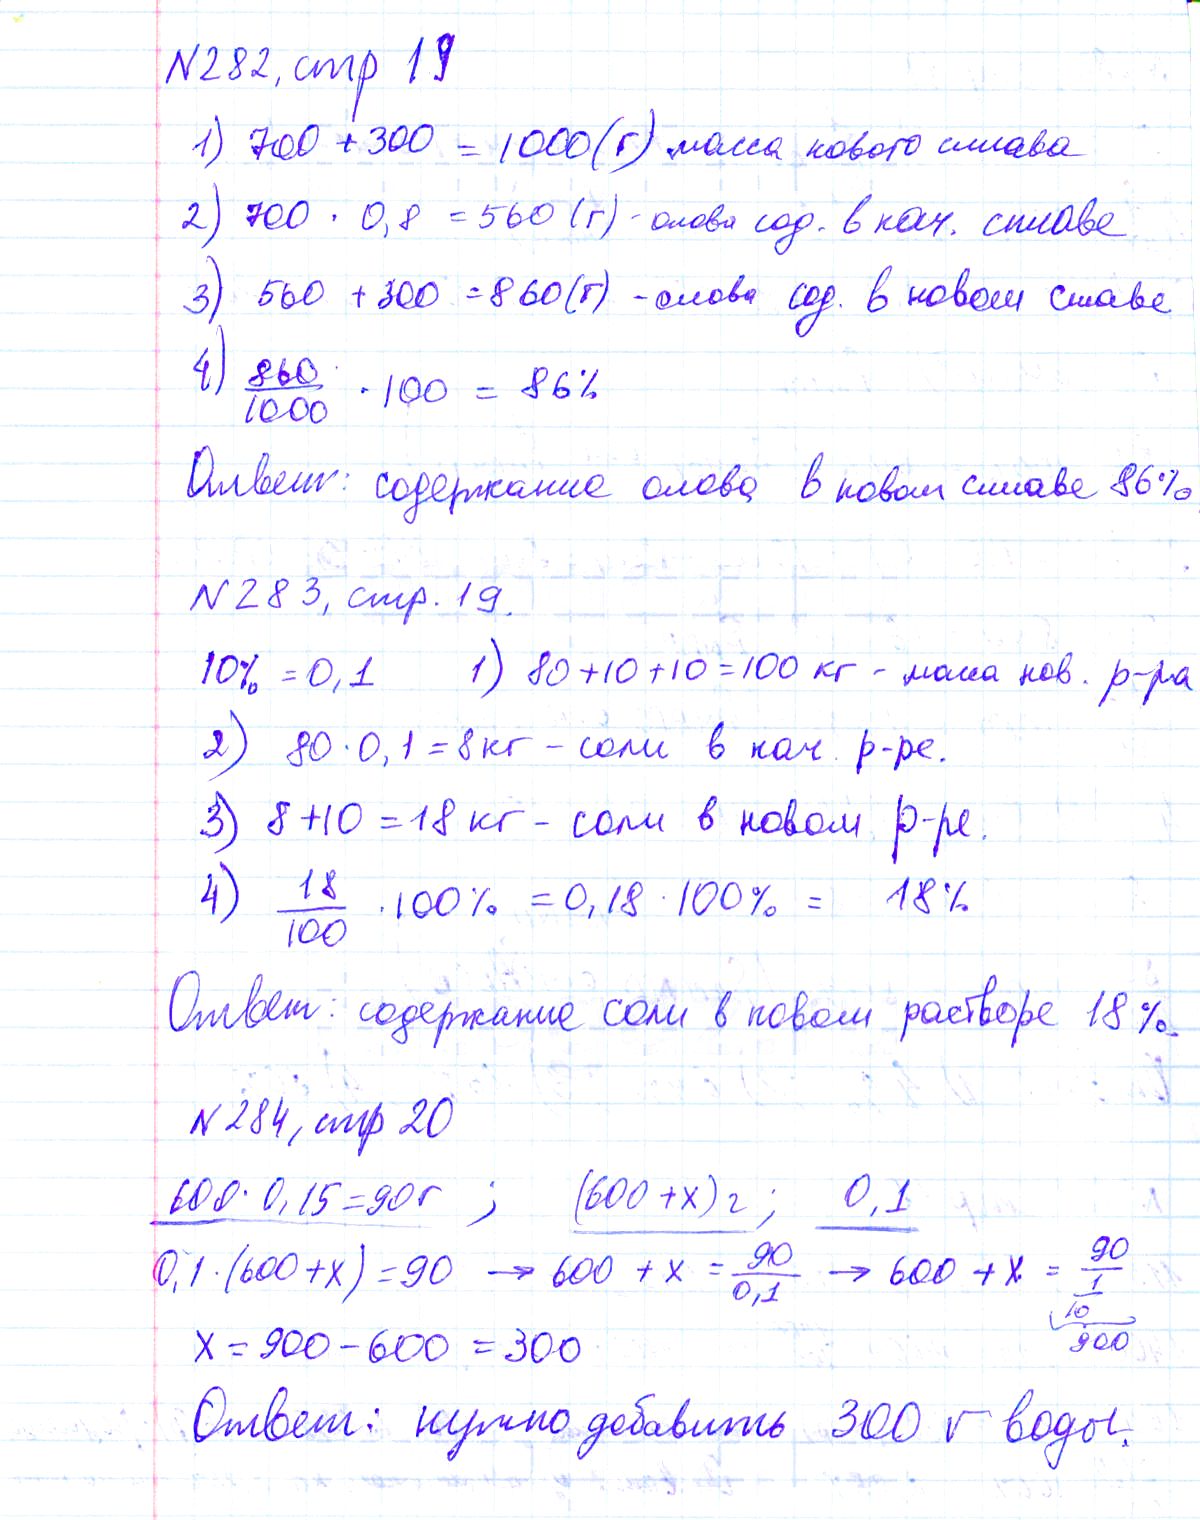 N282, стр 19
1) 700 + 300 = 1000(г) масса нового сплава
2) 700 · 0,8 = 560 (г) - олова сод. в нач. сплаве
3) 560 + 300 = 860(г) - олова сод. в новом сплаве
4) 860/1000 · 100 = 86%
Ответ: содержание олова в новом сплаве 86%
N283, стр. 19.
10% = 0,1 1) 80+10+10=100 кг - масса нов. р-ра
2) 80·0,1=8кг - соли в нач. р-ре.
3) 8+10=18кг - соли в новом р-ре.
4) 18/100 ·100% = 0,18·100% = 18%
Ответ: содержание соли в новом растворе 18%.
N284, стр 20
600·0,15=90г ; (600+x)г ; 0,1
0,1·(600+x)=90 → 600 + x = 90/0,1 → 600 + x = 90/(1/10)
900
x = 900 - 600 = 300
Ответ: нужно добавить 300 г воды.